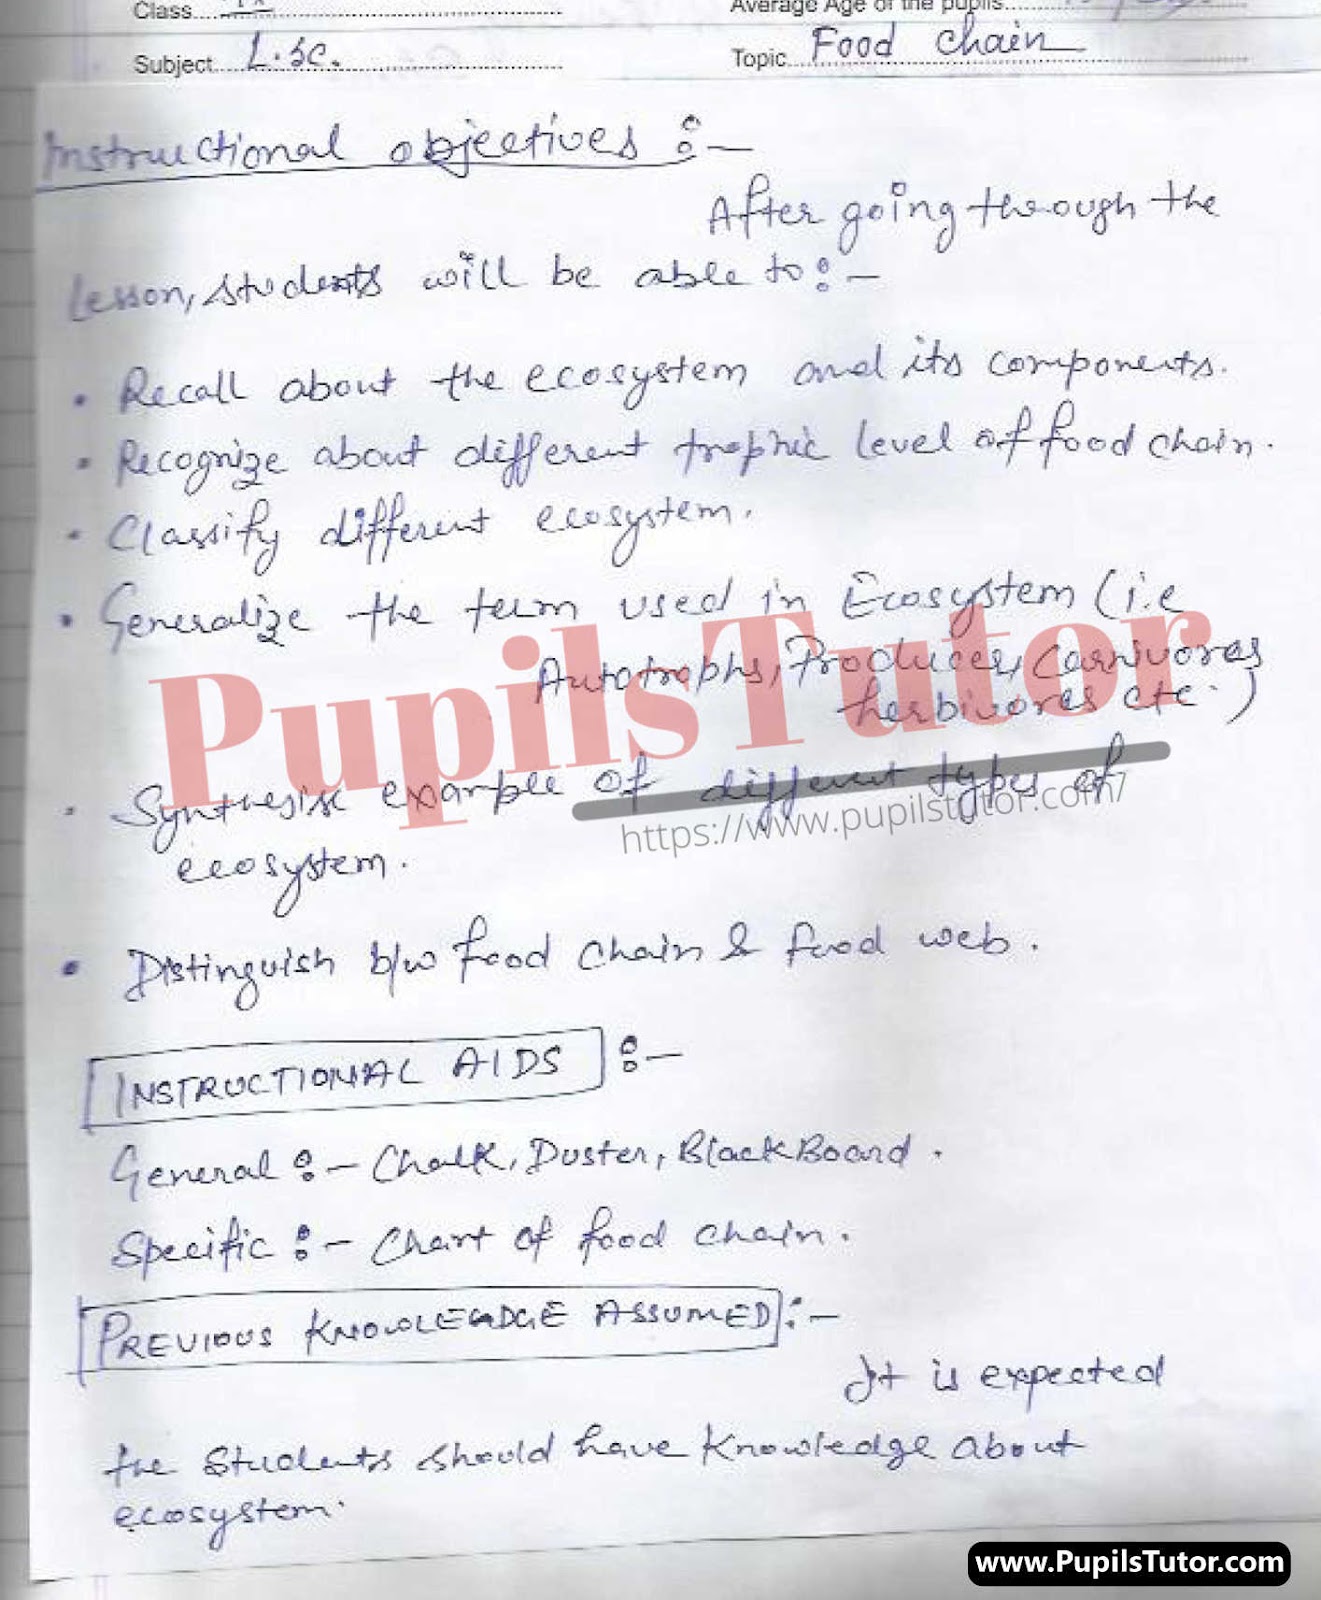 Class
Average Age of the pupils
Subject L.Sc.
Topic Food chain
Instructional objectives :-
After going through the
Lesson, students will be able to :-
• Recall about the ecosystem and its components.
• Recognize about different trophic level of food chain.
• Classify different ecosystem.
• Generalize the term used in Ecosystem (i.e
Autotrophs, Producer, Carnivores
herbivores etc.)
• Synthesise example of different types of
ecosystem.
• Distinguish b/w food chain & food web.
INSTRUCTIONAL AIDS :-
General :- Chalk, Duster, BlackBoard.
Specific :- Chart of food chain.
PREVIOUS KNOWLEDGE ASSUMED :-
It is expected
the students should have knowledge about
ecosystem.
PupilsTutor
https://www.pupilstutor.com/
www.PupilsTutor.com